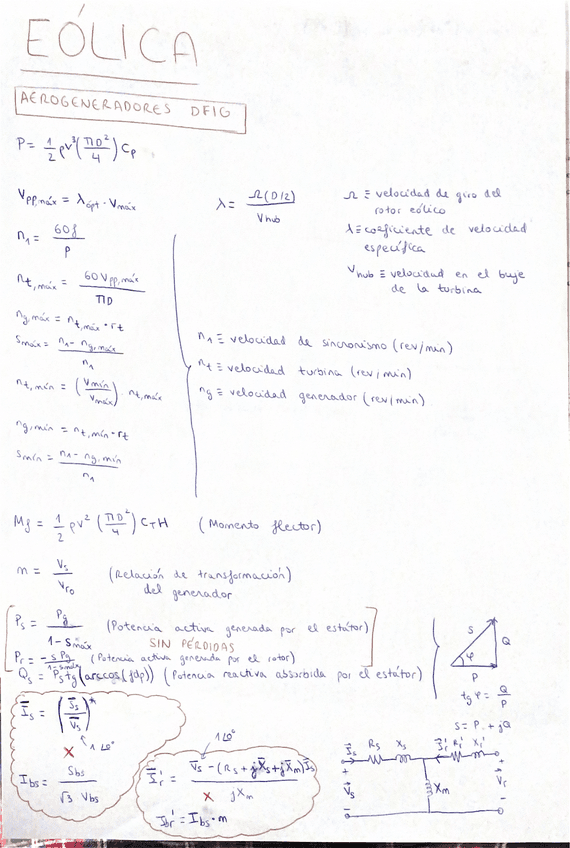 EÓLICA
AEROGENERADORES DFIG
P = 1/2 ρV³(ΠD²/4) Cp
Vpp,máx = λópt · Vmáx
λ = Ω(D/2) / Vhub
Ω ≡ velocidad de giro del
rotor eólico
λ ≡ coeficiente de velocidad
específica
Vhub ≡ velocidad en el buje
de la turbina
n1 = 60f / P
nt,máx = 60Vpp,máx / ΠD
ng,máx = nt,máx · rt
smáx = n1 - ng,máx / n1
nt,mín = (Vmín / Vmáx) · nt,máx
ng,mín = nt,mín · rt
smín = n1 - ng,mín / n1
n1 ≡ velocidad de sincronismo (rev/min)
nt ≡ velocidad turbina (rev/min)
ng ≡ velocidad generador (rev/min)
Mf = 1/2 ρV² (ΠD²/4) CT H (Momento flector)
m = Vs / Vro (Relación de transformación)
del generador
Ps = Pg / 1 - smáx (Potencia activa generada por el estátor)
SIN PÉRDIDAS
Pr = -s Pg / 1-smáx (Potencia activa generada por el rotor)
Qs = Ps tg(arccos(fdp)) (Potencia reactiva absorbida por el estátor)
S
Q
φ
P
tg φ = Q/P
S = P + jQ
Is = (Ss / Vs)*
1∠0°
X
Ibs = Sbs / √3 Vbs
1∠0°
I'r = Vs - (Rs + jXs + jXm)Is / jXm
X
Ibr' = Ibs · m
Is Rs Xs I'r Rr' Xr'
+ Vs - Xm + Vr -